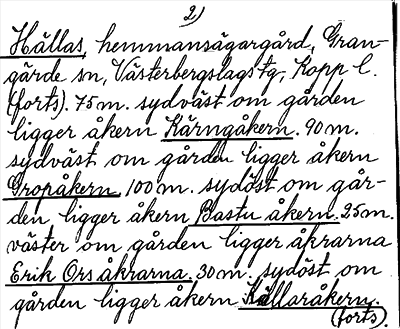 2)
Hållas, hemmansägargård, Gran-
gärde sn, Västerbergslags tg, Kopp l.
(forts). 75 m. sydväst om gården
ligger åkern Kärngåkern. 90 m.
sydväst om gården ligger åkern
Gropåkern. 100 m. sydöst om går-
den ligger åkern Bastu åkern. 25 m.
väster om gården ligger åkrarna
Erik Ors åkrarna. 30 m. sydöst om
gården ligger åkern Källaråkern.
(forts).